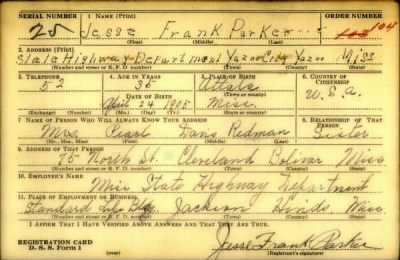 SERIAL NUMBER 1. NAME (Print) ORDER NUMBER
25 Jesse Frank Parker 104
(First) (Middle) (Last)
2. ADDRESS (Print)
State Highway Department Yazoo City Yazoo Miss
(Number and street or R. F. D. number) (Town) (County) (State)
3. TELEPHONE 4. AGE IN YEARS 5. PLACE OF BIRTH 6. COUNTRY OF CITIZENSHIP
52 35 Attala
DATE OF BIRTH (Town or county) U.S.A.
April 24 1905 Miss.
(Exchange) (Number) (Mo.) (Day) (Yr.) (State or country)
7. NAME OF PERSON WHO WILL ALWAYS KNOW YOUR ADDRESS 8. RELATIONSHIP OF THAT PERSON
Mrs. Pearl Redman Sister
(Mr., Mrs., Miss) (First) (Middle) (Last)
9. ADDRESS OF THAT PERSON
75 North St. Cleveland Bolivar Miss
(Number and street or R. F. D. number) (Town) (County) (State)
10. EMPLOYER'S NAME
Miss State Highway Department
11. PLACE OF EMPLOYMENT OR BUSINESS
Standard Life Bldg. Jackson Hinds, Miss
(Number and street or R. F. D. number) (Town) (County) (State)
I AFFIRM THAT I HAVE VERIFIED ABOVE ANSWERS AND THAT THEY ARE TRUE.
REGISTRATION CARD
D. S. S. Form 1 Jesse Frank Parker
(Registrant's signature)